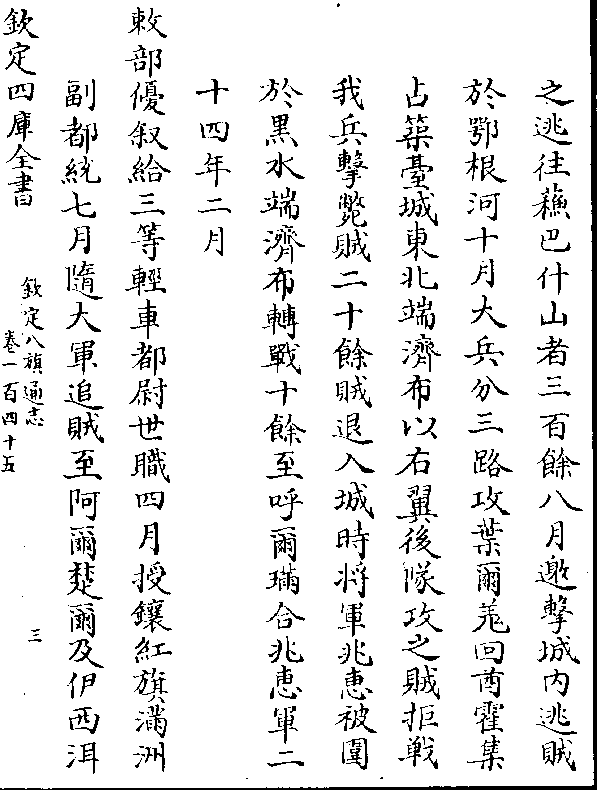 之逃往蘓巴什山者三百餘八月邀擊城内逃賊
於鄂根河十月大兵分三路攻葉爾羌回酋霍集
占築臺城東北端濟布以右翼後隊攻之賊拒戰
我兵擊斃賊二十餘賊退入城時将軍兆惠被圍
於黒水端濟布轉戰十餘至呼爾璊合兆惠軍二
十四年二月
敕部優叙給三等輕車都尉世職四月授鑲紅旗滿洲
副都統七月隨大軍追賊至阿爾楚爾及伊西洱
欽定四庫全書
欽定八旗通志
卷一百四十五
三